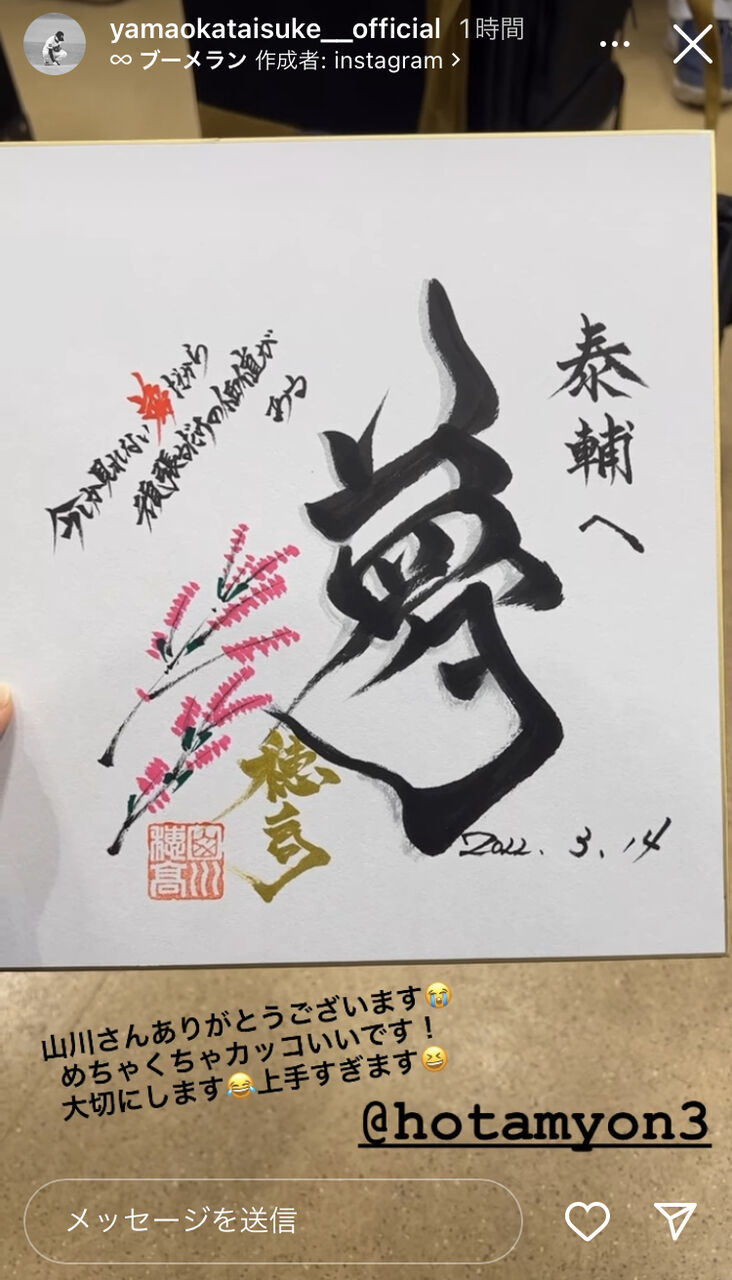 yamaokataisuke__official 1時間
∞ ブーメラン 作成者: instagram >
泰輔へ
夢
今しか見れない夢だから
頑張るだけの価値が
ある
穂高
山川
穂高
2022. 3. 14
山川さんありがとうございます😭
めちゃくちゃカッコいいです！
大切にします😂上手すぎます😆
@hotamyon3
メッセージを送信